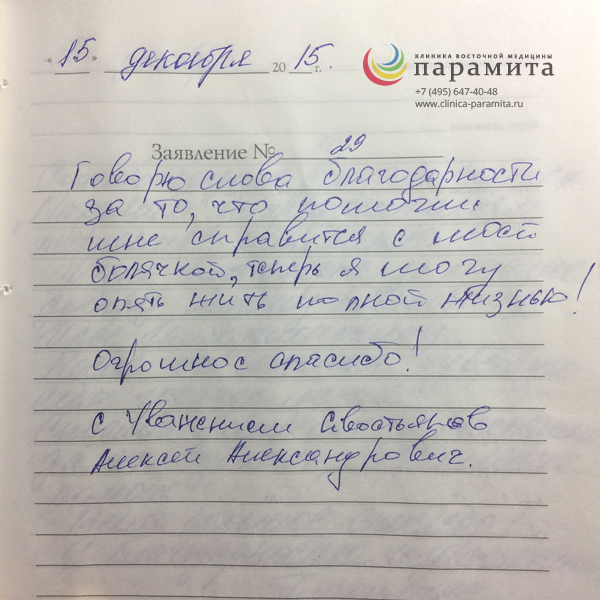 « 15 » декабря 20 15 г.
КЛИНИКА ВОСТОЧНОЙ МЕДИЦИНЫ
парамита
+7 (495) 647-40-48
www.clinica-paramita.ru
Заявление № 29
Говорю слова благодарности
за то, что помогли
мне справится с моей
болячкой, теперь я могу
опять жить полной жизнью!
Огромное спасибо!
С Уважением Севостьянов
Алексей Александрович.